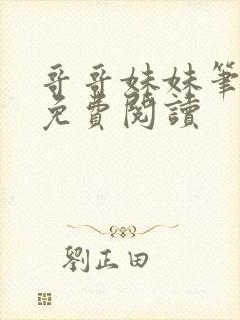 哥哥妹妹筆
免費閱讀
劉正田